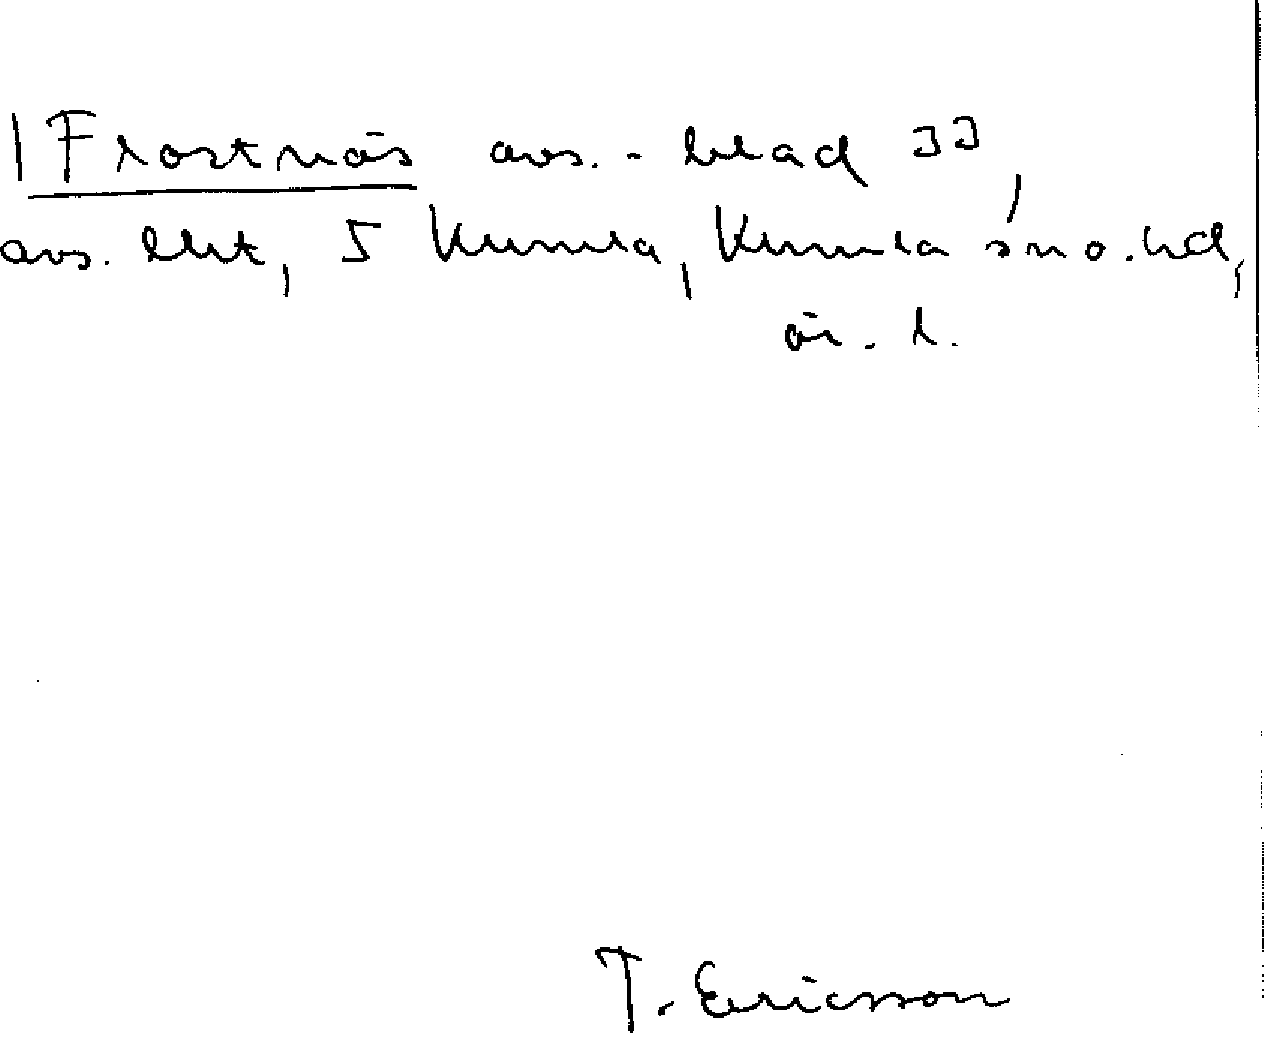 |Frostnäs avs.-blad 33,
avs. lht, 5 Kumla, Kumla sno.hd,
ör. l.
T. Ericsson